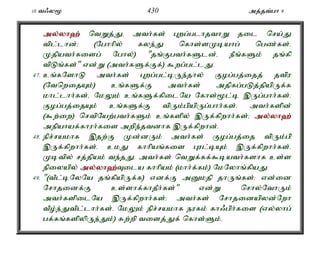 10 வஃலமூ 430 அத்தவ்பா 9
அல்லாஹ் வெறுத்து, அவர்கள் புறப்படாதவாறு தடை செய்து
விட்டான்; (போரில் கலந்து கொள்ளமுடியாப் பெண்கள்,
முதியவர்களைப் போல்) "தங்குபவர்களுடன், நீங்களும் தங்கி
விடுங்கள்" என்று (அவர்களுக்குக்) கூறப்பட்டது.
47. உங்களோடு அவர்கள் புறப்பட்டிருந்தால் குழப்பத்தைத் தவிர
(வேறெதையும்) உங்களுக்கு அவர்கள் அதிகப்படுத்தியிருக்க
மாட்டார்கள். மேலும் உங்களுக்கிடையே கோள்மூட்டி இருப்பார்கள்.
குழப்பத்தையும் உங்களுக்கு விரும்பியிருப்பார்கள். அவர்களின்
(கூற்றை) செவியேற்பவர்களும் உங்களில் இருக்கிறார்கள்; அல்லாஹ்
அநியாயக்காரர்களை அறிந்தவனாக இருக்கிறான்.
48. நிச்சயமாக இதற்கு முன்னரும் அவர்கள் குழப்பத்தை விரும்பி
இருக்கிறார்கள். உமது காரியங்களை புரட்டியும் இருக்கிறார்கள்.
முடிவில் சத்தியம் வந்தது. அவர்கள் வெறுக்கக்கூடியவர்களாக உள்ள
நிலையில் அல்லாஹ்வுடைய காரியம் (மார்க்கம்) மேலோங்கியது.
49. "(வீட்டிலேயே தங்கியிருக்க) எனக்கு அனுமதி தாருங்கள்; என்னை
சோதனைக்கு உள்ளாக்காதீர்கள்" என்று சொல்வோரும்
அவர்களிடையே இருக்கிறார்கள்; அவர்கள் சோதனையிலன்றோ
வீழ்ந்துவிட்டார்கள். மேலும் நிச்சயமாக நரகம் காஃபிர்களை (எல்லாப்
பக்கங்களிலிருந்தும்) சுற்றி வளைத்துக் கொள்ளும்.